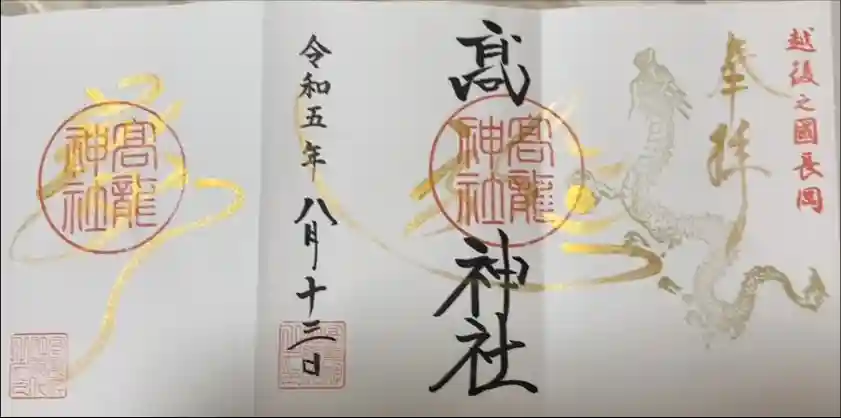 越後之國長岡
奉拝
髙龍神社
髙龍神社
令和五年八月十三日
髙龍神社